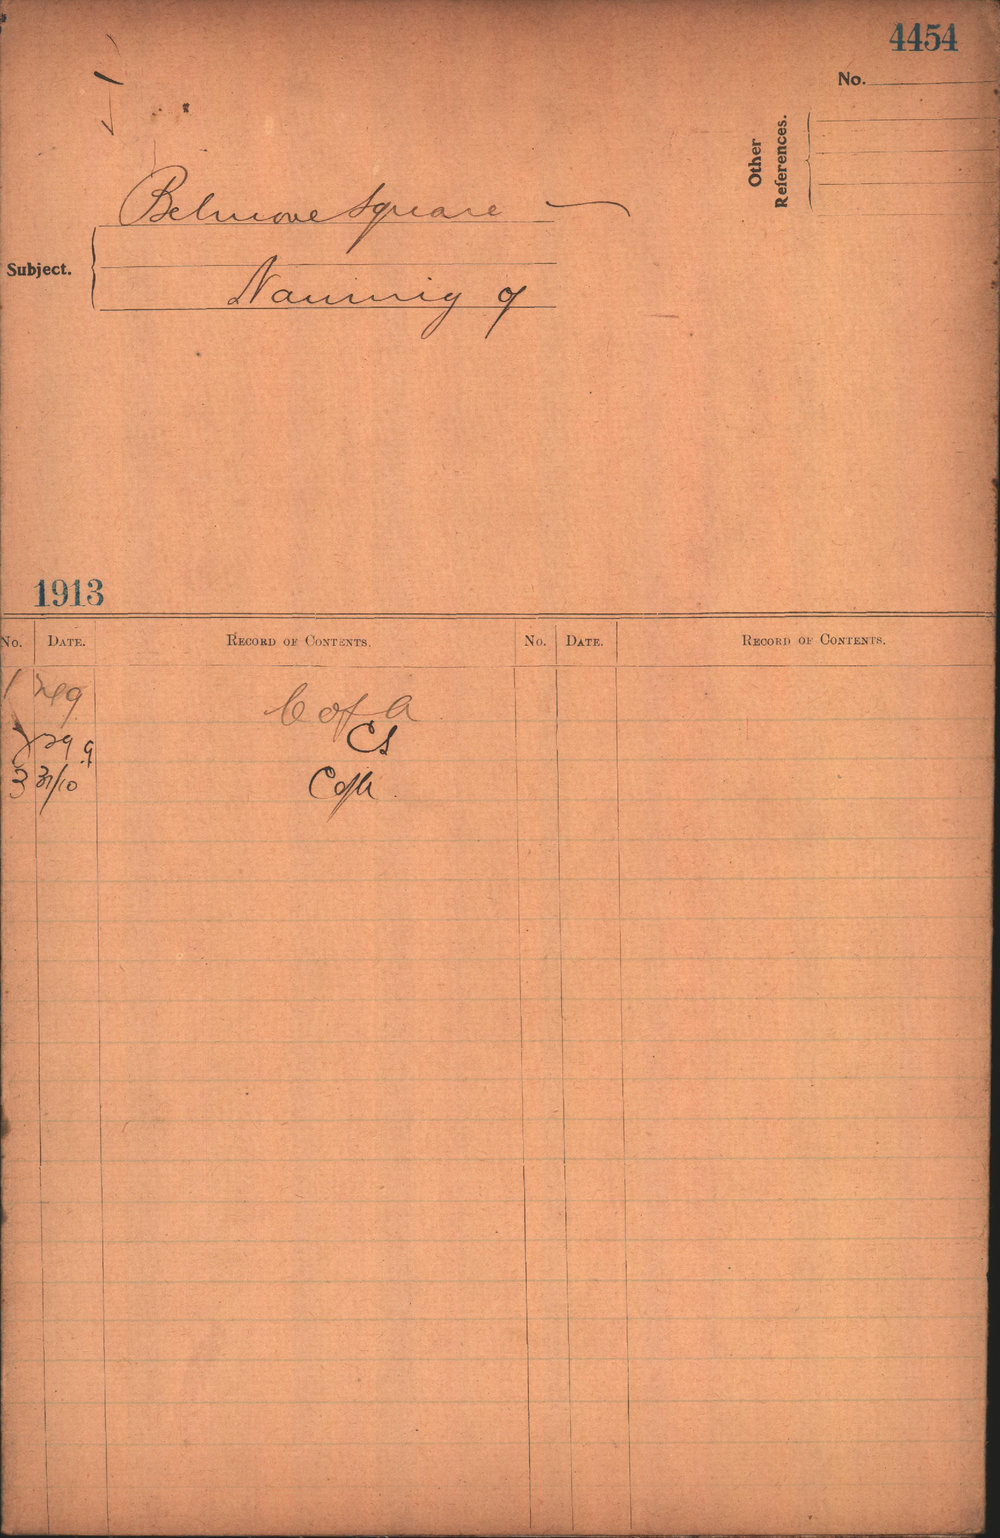 4454
No.
Other
References.
Belmore Square
Subject.
Naming of
1913
No. DATE. RECORD OF CONTENTS. No. DATE. RECORD OF CONTENTS.
1
C of A
29 9 CS
3 31/10 C of A